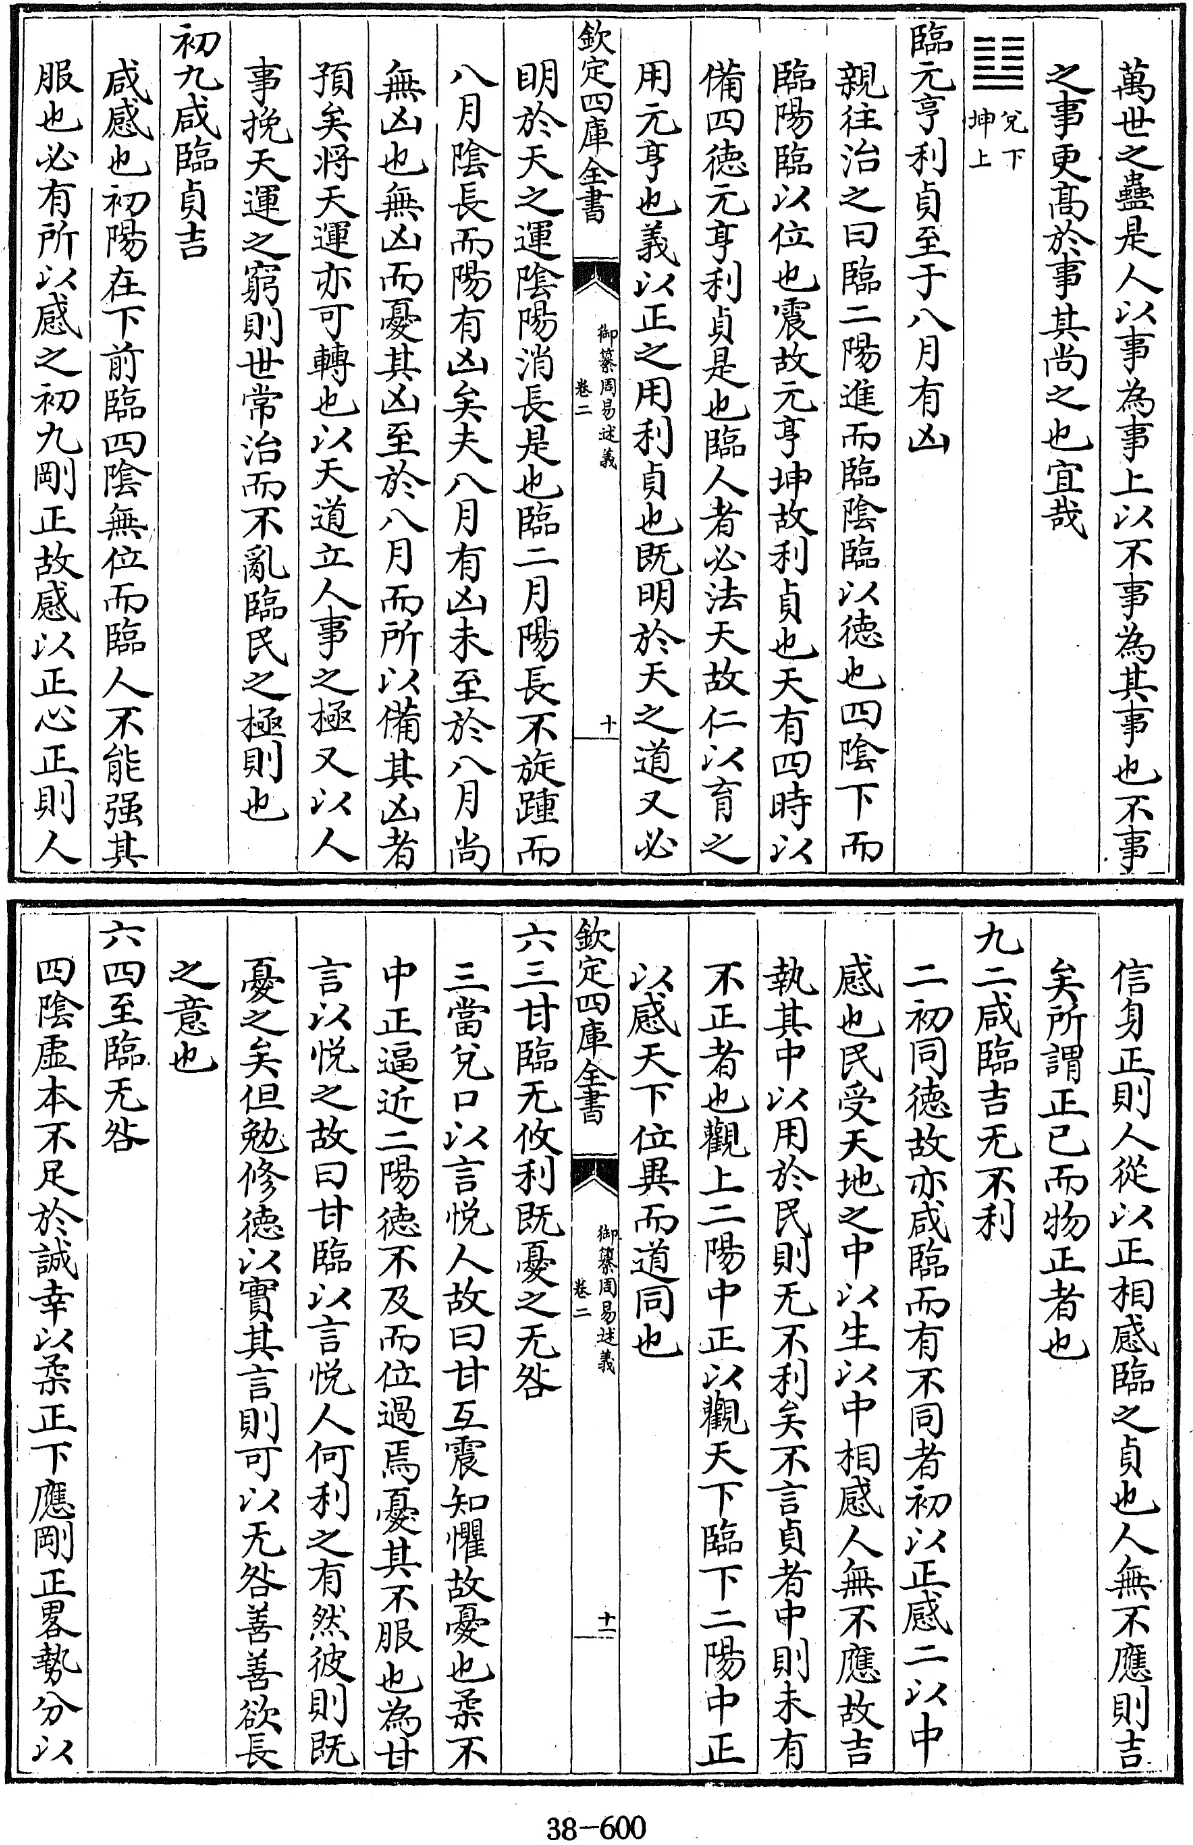 萬世之蠱是人以事為事上以不事為其事也不事
之事更髙於事其尚之也宜哉
䷒兌下坤上
臨元亨利貞至于八月有凶
親往治之曰臨二陽進而臨陰臨以徳也四陰下而
臨陽臨以位也震故元亨坤故利貞也天有四時以
備四徳元亨利貞是也臨人者必法天故仁以育之
用元亨也義以正之用利貞也既明於天之道又必
欽定四庫全書
御纂周易述義
卷二
十
明於天之運陰陽消長是也臨二月陽長不旋踵而
八月陰長而陽有凶矣夫八月有凶未至於八月尚
無凶也無凶而憂其凶至於八月而所以備其凶者
預矣将天運亦可轉也以天道立人事之極又以人
事挽天運之窮則世常治而不亂臨民之極則也
初九咸臨貞吉
咸感也初陽在下前臨四陰無位而臨人不能强其
服也必有所以感之初九剛正故感以正心正則人
信身正則人從以正相感臨之貞也人無不應則吉
矣所謂正已而物正者也
九二咸臨吉无不利
二初同徳故亦咸臨而有不同者初以正感二以中
感也民受天地之中以生以中相感人無不應故吉
執其中以用於民則无不利矣不言貞者中則未有
不正者也觀上二陽中正以觀天下臨下二陽中正
以感天下位異而道同也
欽定四庫全書
御纂周易述義
卷二
十一
六三甘臨无攸利既憂之无咎
三當兌口以言悦人故曰甘互震知懼故憂也柔不
中正逼近二陽徳不及而位過焉憂其不服也為甘
言以悦之故曰甘臨以言悦人何利之有然彼則既
憂之矣但勉修徳以實其言則可以无咎善善欲長
之意也
六四至臨无咎
四陰虛本不足於誠幸以柔正下應剛正畧勢分以
38-600